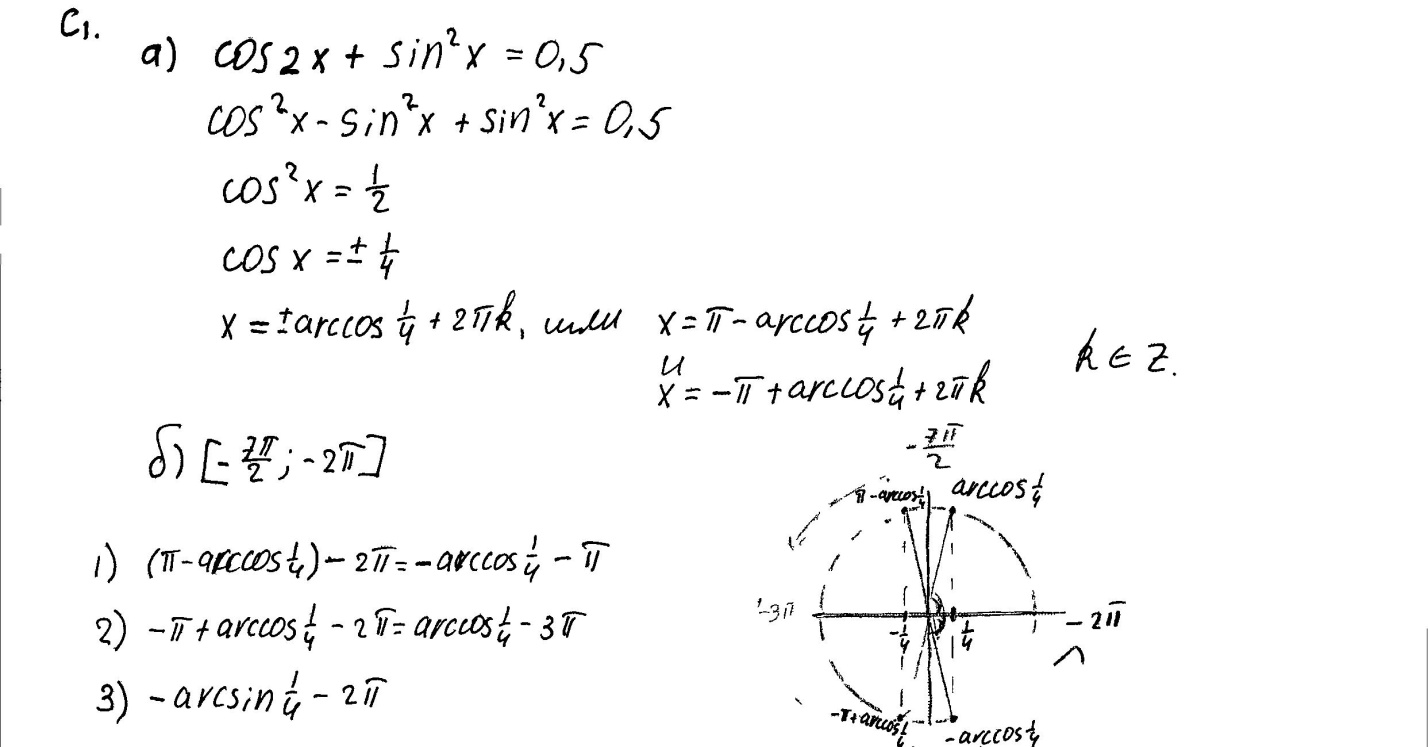 C1.
а) cos2x + sin²x = 0,5
cos²x - sin²x + sin²x = 0,5
cos²x = 1/2
cos x = ± 1/4
x = ±arccos 1/4 + 2πk, или x = π - arccos 1/4 + 2πk
и
x = -π + arccos 1/4 + 2πk
k ∈ Z.
б) [-7π/2; -2π]
1) (π - arccos 1/4) - 2π = -arccos 1/4 - π
2) -π + arccos 1/4 - 2π = arccos 1/4 - 3π
3) -arcsin 1/4 - 2π
-7π/2
π - arccos 1/4
arccos 1/4
-3π
-1/4
1/4
-2π
-π + arccos 1/4
-arccos 1/4